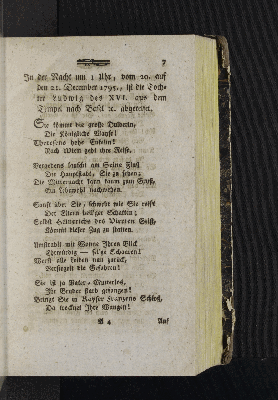 7
In der Nacht um 1 Uhr, vom 20. auf
den 21. December 1795., ist die Toch-
ter Ludwig des XVI. aus dem
Temps. nach Basel ic. abgereiset.
Sie kömmt die große Dulderin,
Die Königliche Wayse!
Theresens hohe Enkelin!
Nach Wien geht ihre Reise.
Vergebens lauscht am Seine Fluß
Die Hauptstadt, Sie zu sehen;
Die Mitternacht kann kaum zum Gruß,
Ein Lebewohl nachwehen.
Sanft über Sie, schwebt wie Sie reist
Der Eltern heiliger Schatten;
Selbst Heinrichs des Vierten Geist,
Kömmt dieser Zug zu statten.
Umstrahlt mit Wonne Ihren Blick
Ehrwürdig — sel'ge Schaaren!
Werft alle Leiden nun zurück,
Versiegelt die Gefahren!
Sie ist ja Vater- Mutterlos,
Ihr Bruder starb gefangen!
Bringt Sie in Kayser Franzens Schloß,
Da trocknet Ihre Wangen!
A 4
Auf